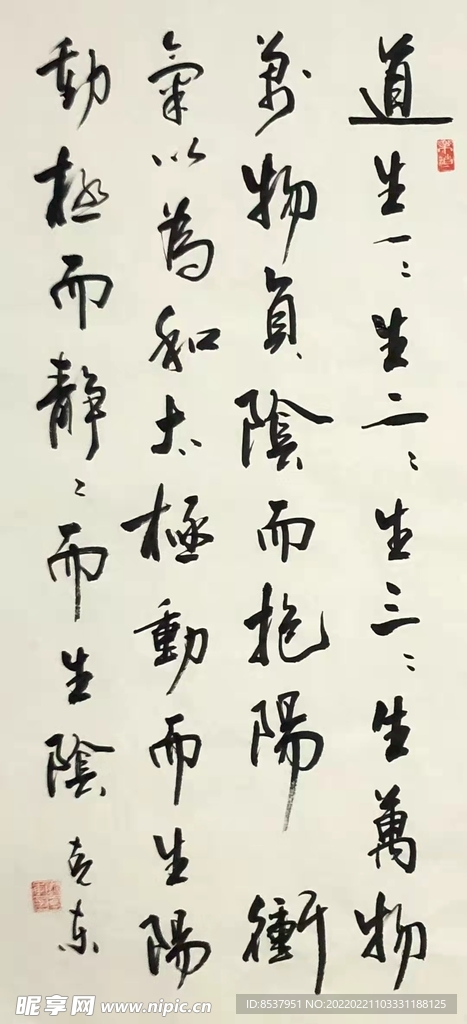 道生一〻生二〻生三〻生萬物
万物負陰而抱陽衝
氣以為和太極動而生陽
動極而静〻而生陰
克东
昵享网 www.nipic.cn
ID:8537951 NO:20220221103331188125